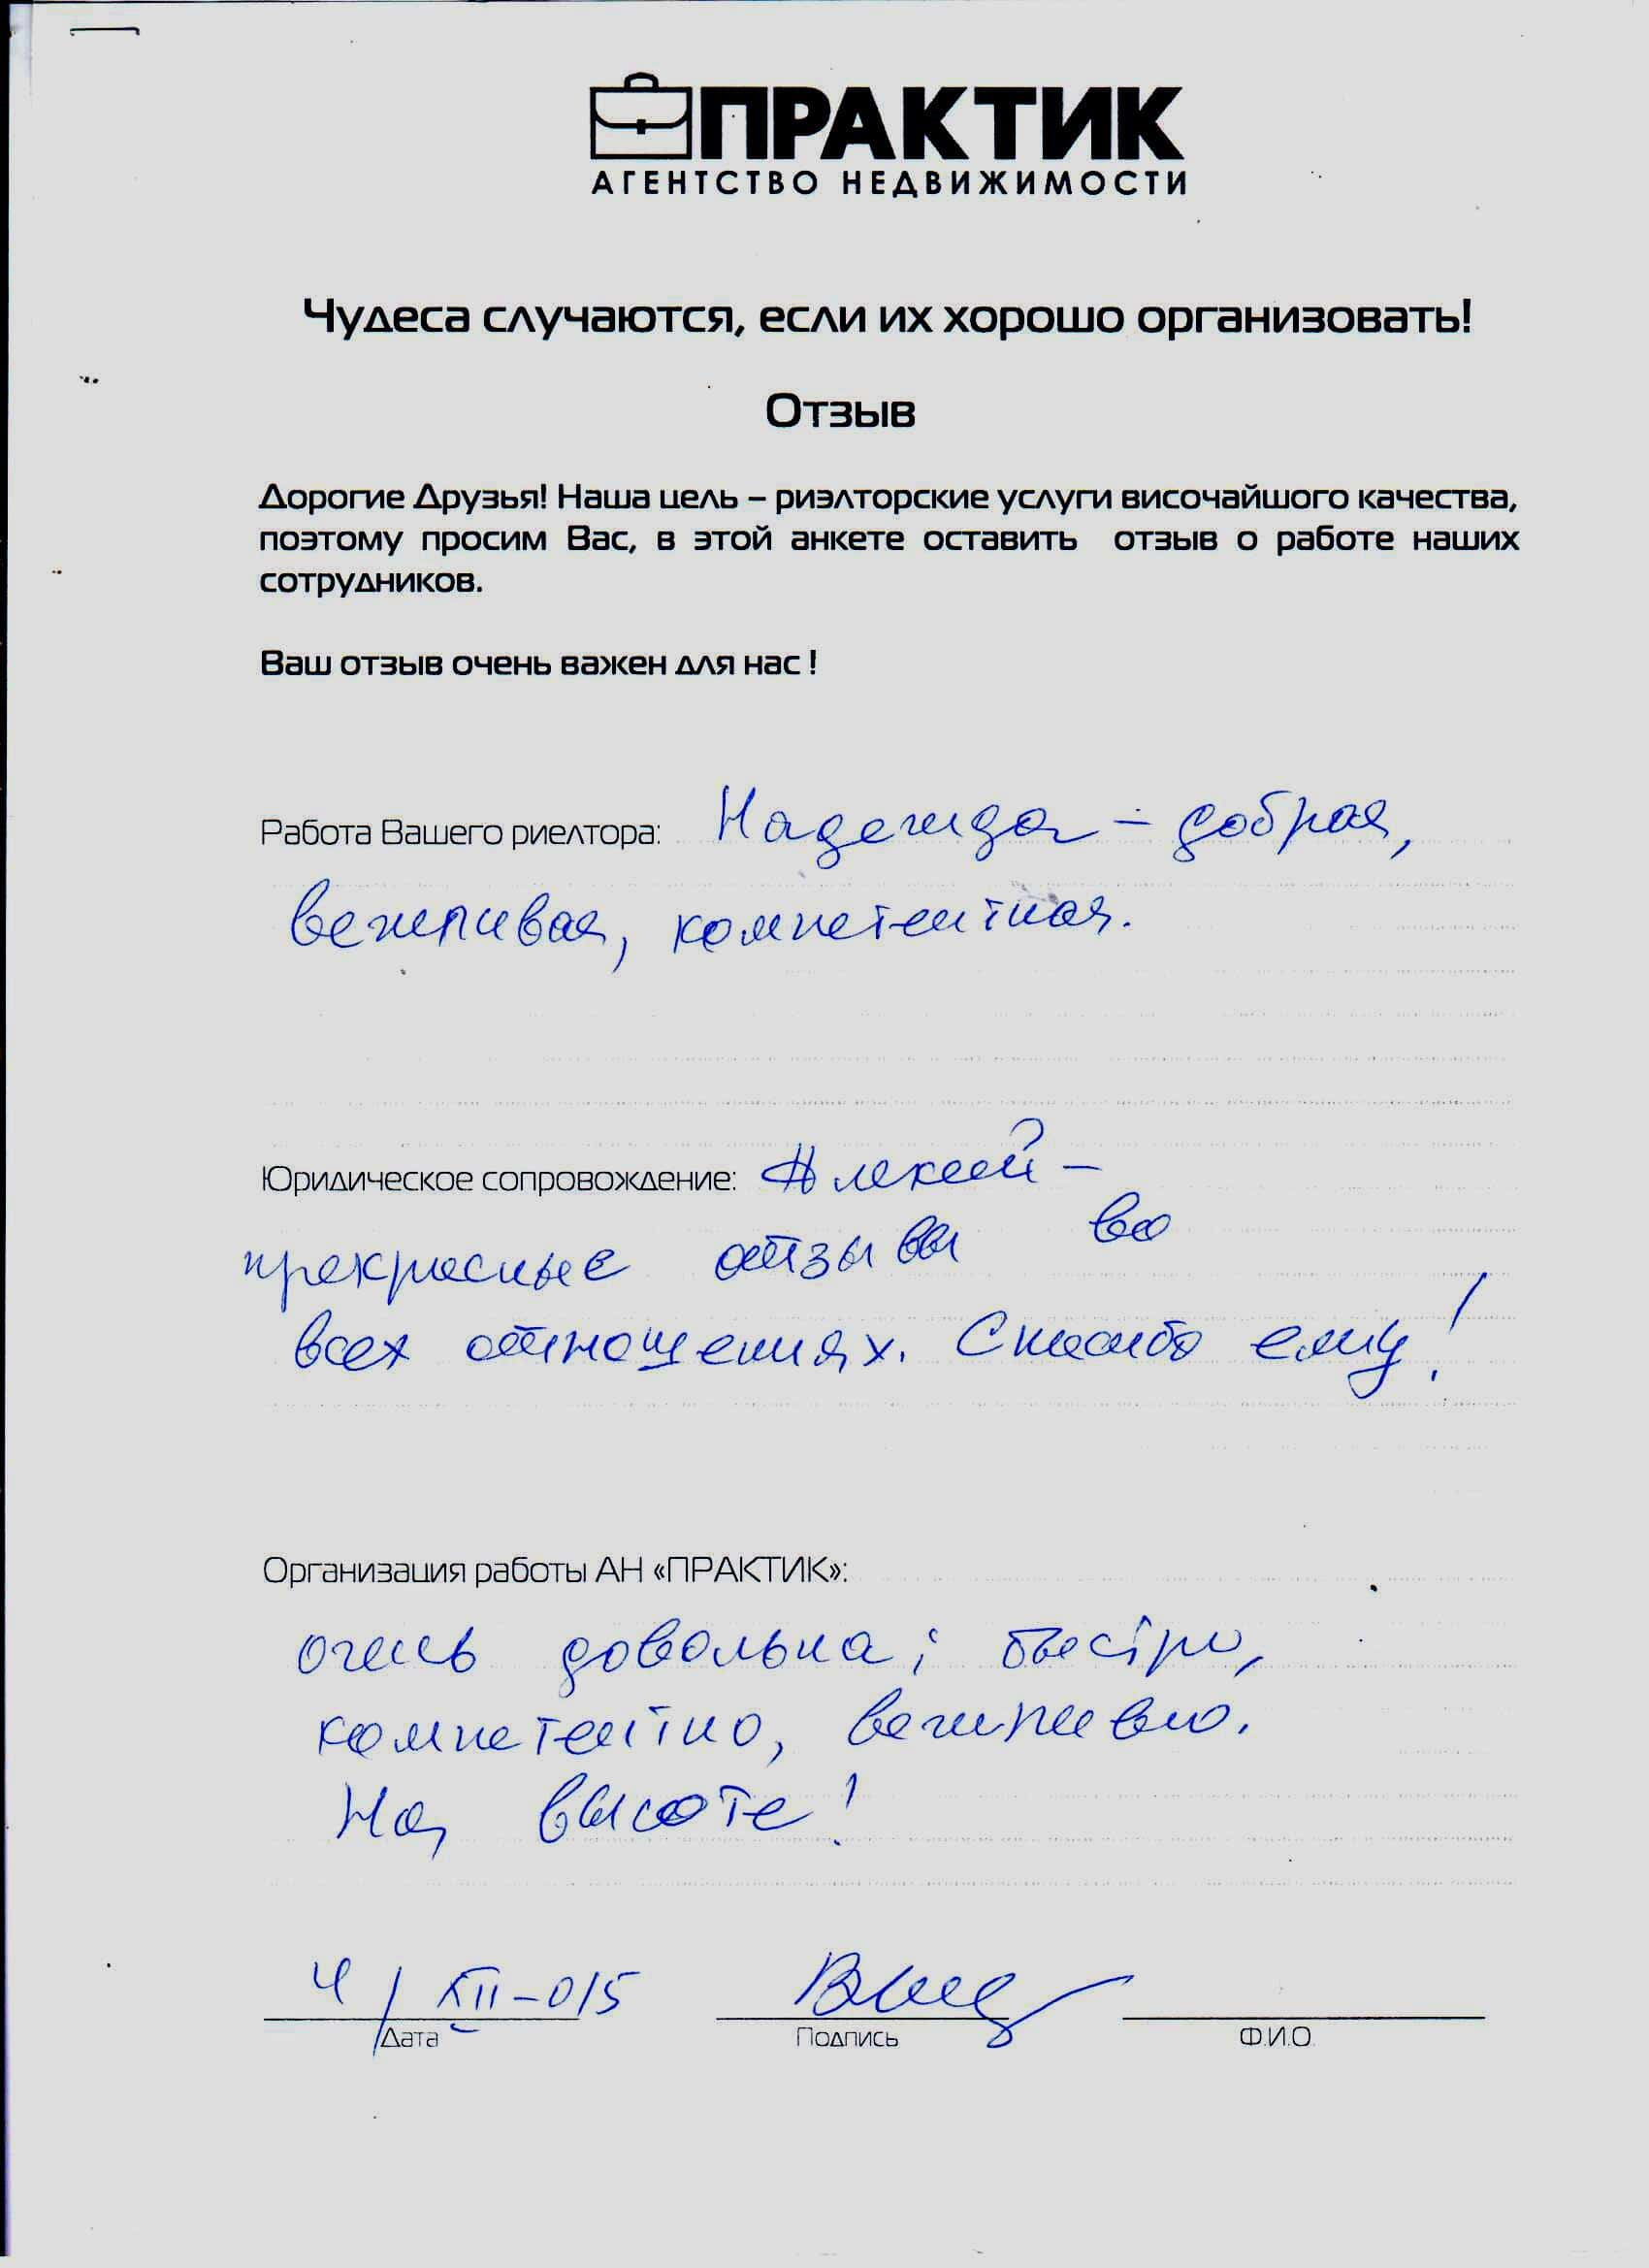 ПРАКТИК
АГЕНТСТВО НЕДВИЖИМОСТИ
Чудеса случаются, если их хорошо организовать!
Отзыв
Дорогие Друзья! Наша цель – риэлторские услуги височайшого качества,
поэтому просим Вас, в этой анкете оставить отзыв о работе наших
сотрудников.
Ваш отзыв очень важен для нас !
Работа Вашего риелтора: Надежда – добрая,
вежливая, компетентная.
Юридическое сопровождение: Алексей –
прекрасные отзывы во
всех отношениях. Спасибо ему!
Организация работы АН «ПРАКТИК»:
очень довольна; быстро,
компетентно, вежливо.
На высоте!
4/XII-015
Дата Подпись Ф.И.О.